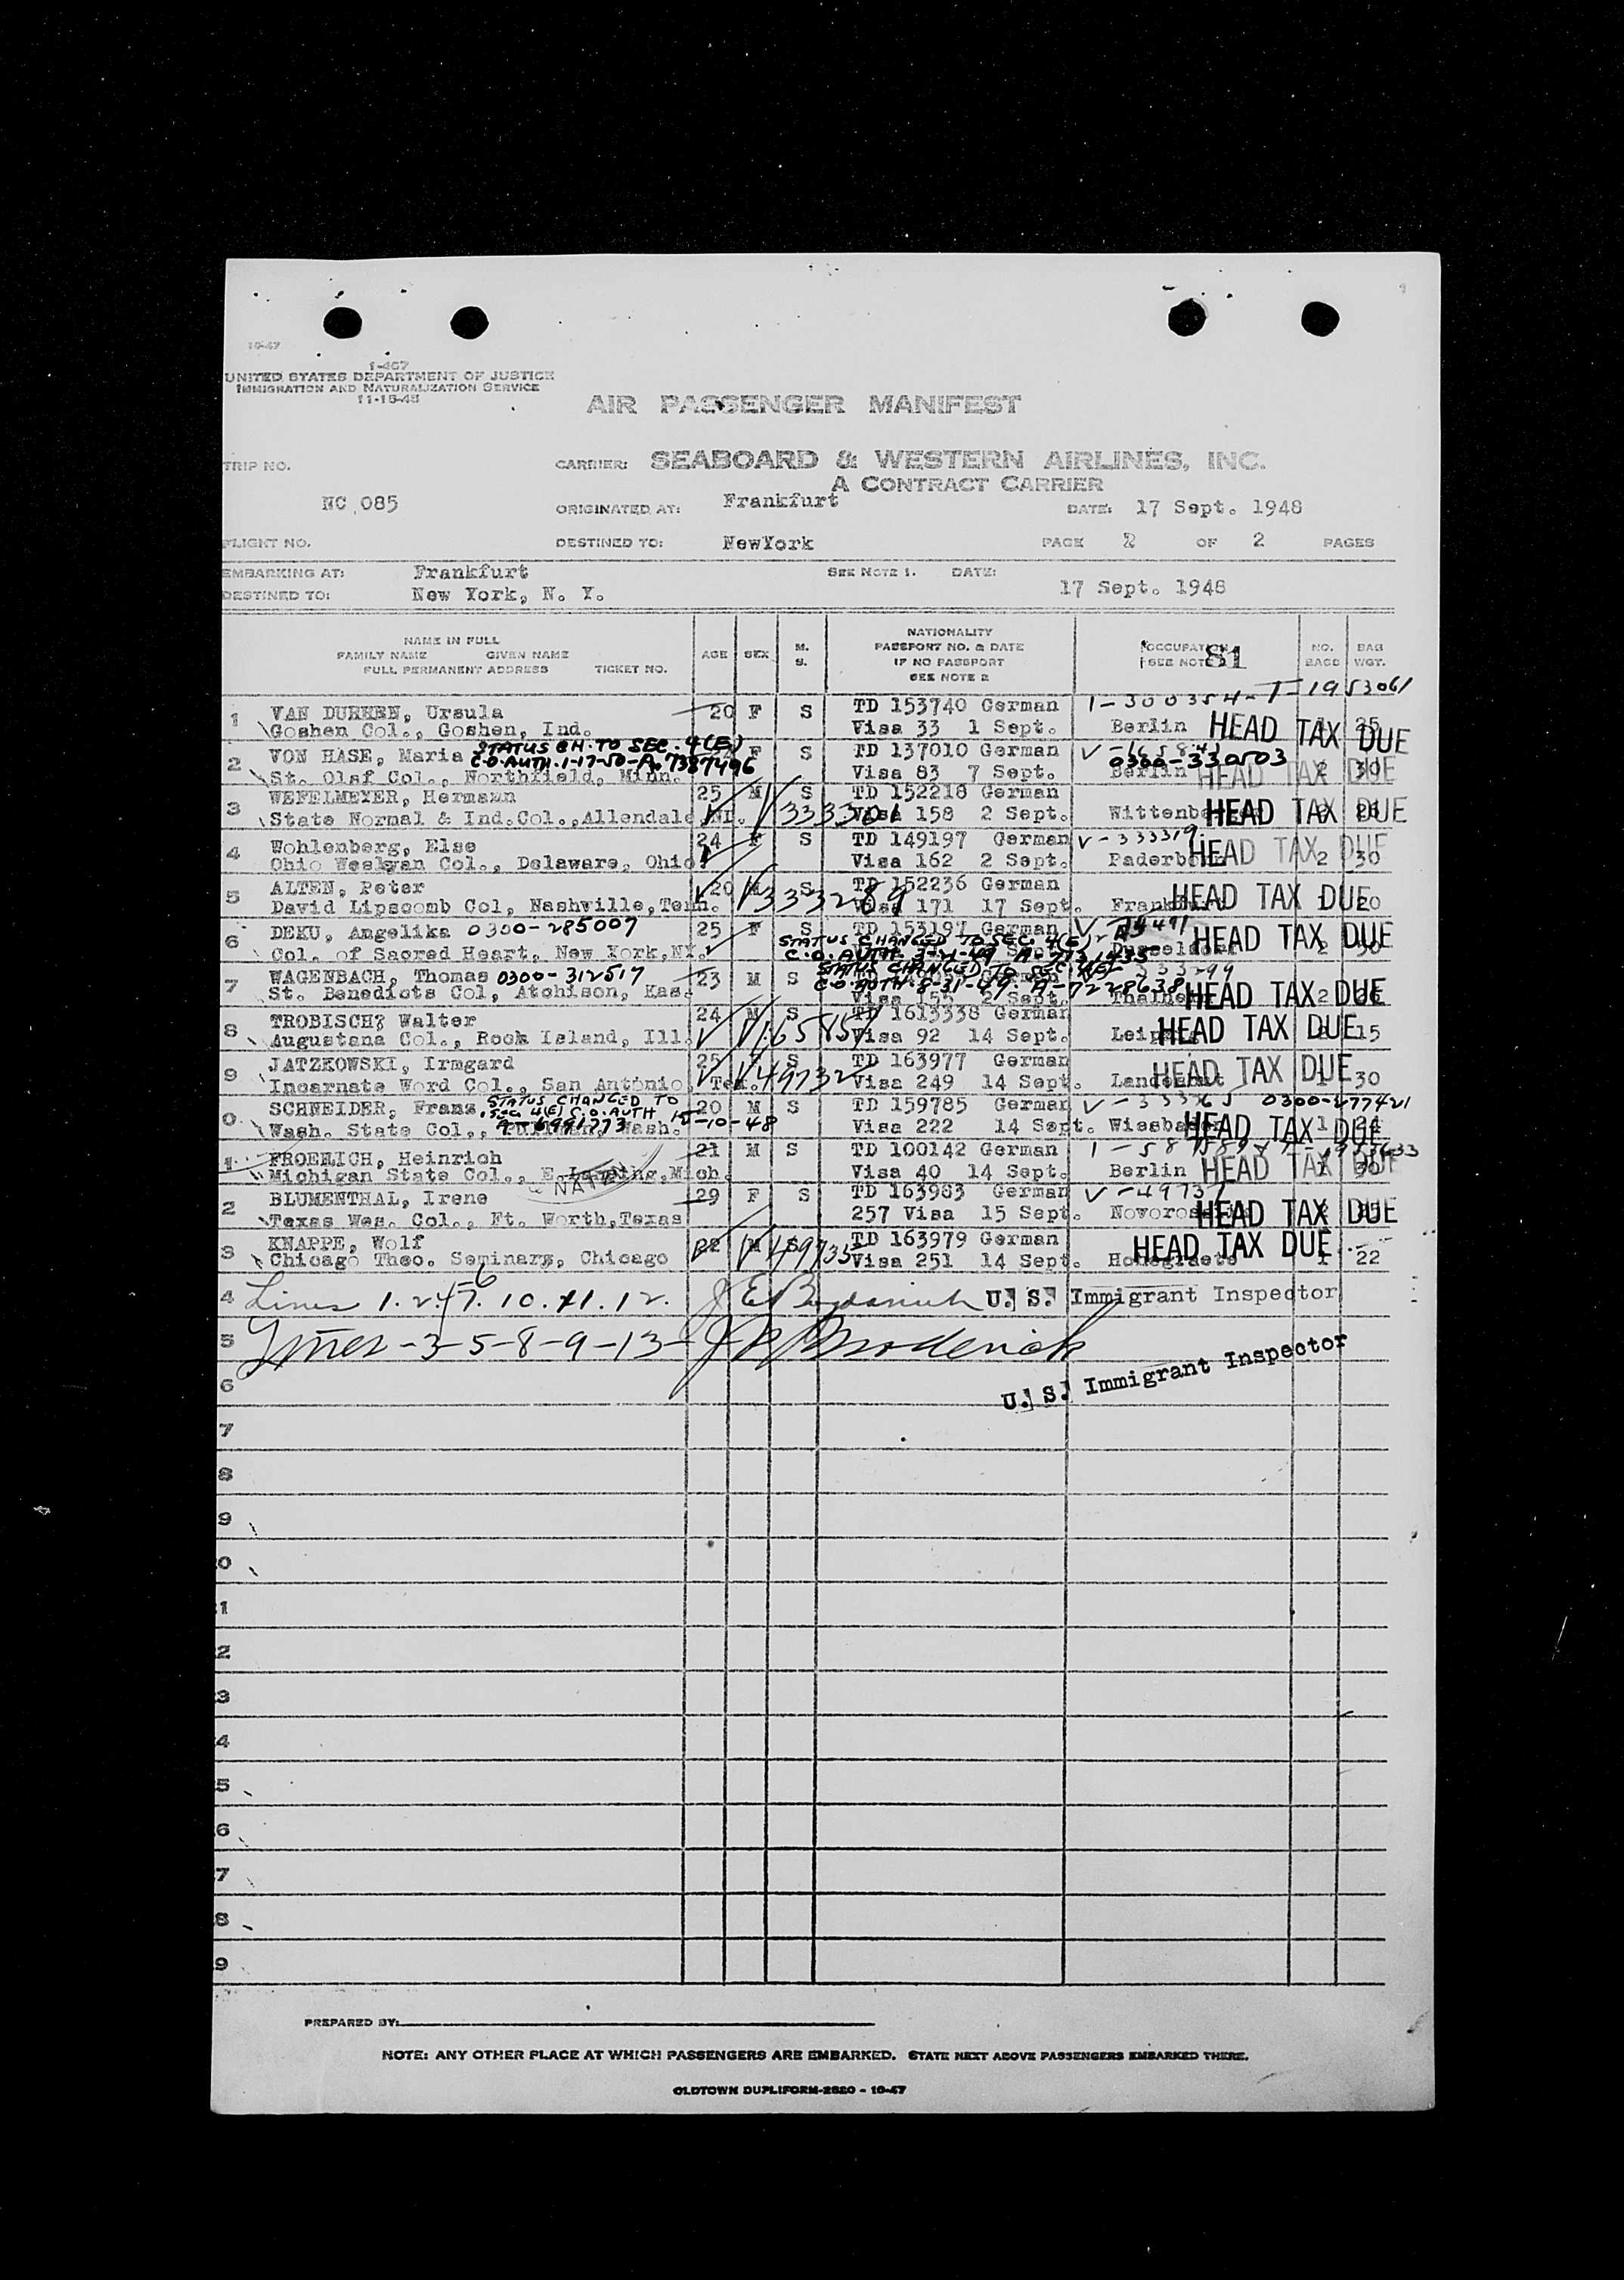 10-47
1-467
UNITED STATES DEPARTMENT OF JUSTICE
IMMIGRATION AND NATURALIZATION SERVICE
11-18-48
AIR PASSENGER MANIFEST
TRIP NO. CARRIER: SEABOARD & WESTERN AIRLINES, INC.
A CONTRACT CARRIER
NC 085 ORIGINATED AT: Frankfurt DATE: 17 Sept. 1948
FLIGHT NO. DESTINED TO: NewYork PAGE 2 OF 2 PAGES
EMBARKING AT: Frankfurt SEE NOTE 1. DATE:
DESTINED TO: New York, N. Y. 17 Sept. 1948
NAME IN FULL
FAMILY NAME GIVEN NAME
FULL PERMANENT ADDRESS TICKET NO.
AGE SEX M. S.
NATIONALITY
PASSPORT NO. & DATE
IF NO PASSPORT
SEE NOTE 2
OCCUPATION
SEE NOTE 81
NO. BAGS BAG WGT.
1-300354-T-1953061
1 VAN DURREN, Ursula 20 F S TD 153740 German
Goshen Col., Goshen, Ind. Visa 33 1 Sept. Berlin 25 HEAD TAX DUE
STATUS CH. TO SEC. 4(E)
2 VON HASE, Maria F S TD 137010 German
C.O. AUTH. 1-17-50-A-7387496 0300-330503
St. Olaf Col., Northfield, Minn. Visa 83 7 Sept. Berlin 2 30 HEAD TAX DUE
3 WEFELMEYER, Hermann 25 M S TD 152218 German
State Normal & Ind.Col.,Allendale V333301 Visa 158 2 Sept. HEAD TAX DUE
4 Wohlenberg, Else 24 F S TD 149197 German V-333319
Ohio Wesleyan Col., Delaware, Ohio Visa 162 2 Sept. Paderborn 2 30 HEAD TAX DUE
5 ALTEN, Peter 20 M S TD 152236 German
David Lipscomb Col, Nashville,Tenn. V333289 Visa 171 17 Sept. Frankfurt 1 20 HEAD TAX DUE
6 DEKU, Angelika 0300-285007 25 F S TD 153197 German
STATUS CHANGED TO SEC. 4(E)
Col. of Sacred Heart, New York,NY. Dusseldorf 2 30 HEAD TAX DUE
C.O. AUTH. 3-21-49
STATUS CHANGED TO SEC. 4(E)
7 WAGENBACH, Thomas 0300-312517 23 M S
C.O. AUTH. 8-31-49. A-7228638
St. Benedicts Col, Atchison, Kas. Visa 155 2 Sept. 2 HEAD TAX DUE
8 TROBISCH? Walter 24 M S TD 1613338 German
Augustana Col., Rock Island, Ill. Visa 92 14 Sept. Leipzig 15 HEAD TAX DUE
9 JATZKOWSKI, Irmgard 25 S TD 163977 German
Incarnate Word Col., San Antonio, Tex. V49732 Visa 249 14 Sept. 1 30 HEAD TAX DUE
STATUS CHANGED TO
0 SCHNEIDER, Frans 20 M S TD 159785 German V-33365 0300-277421
SEC 4(E) C.O. AUTH 15-10-48
Wash. State Col., Pullman, Wash. Visa 222 14 Sept. Wiesbaden 1 HEAD TAX DUE
A-6991773
1 FROEHLICH, Heinrich 21 M S TD 100142 German
Michigan State Col., E.Lansing,Mich. Visa 40 14 Sept. Berlin 1 30 HEAD TAX DUE
2 BLUMENTHAL, Irene 29 F S TD 163983 German V-49737
Texas Wes. Col., Ft. Worth,Texas 257 Visa 15 Sept. HEAD TAX DUE
3 KNAPPE, Wolf 22 M S TD 163979 German
Chicago Theo. Seminary, Chicago V49735 Visa 251 14 Sept. 1 22 HEAD TAX DUE
4 Lines 1.2.4.6 7.10.11.12. U. S. Immigrant Inspector
5 Lines-3-5-8-9-13- J Broderick
U. S. Immigrant Inspector
6
7
8
9
0
1
2
3
4
5
6
7
8
9
PREPARED BY:
NOTE: ANY OTHER PLACE AT WHICH PASSENGERS ARE EMBARKED. STATE NEXT ABOVE PASSENGERS EMBARKED THERE.
OLDTOWN DUPLIFORM-2820 - 10-47